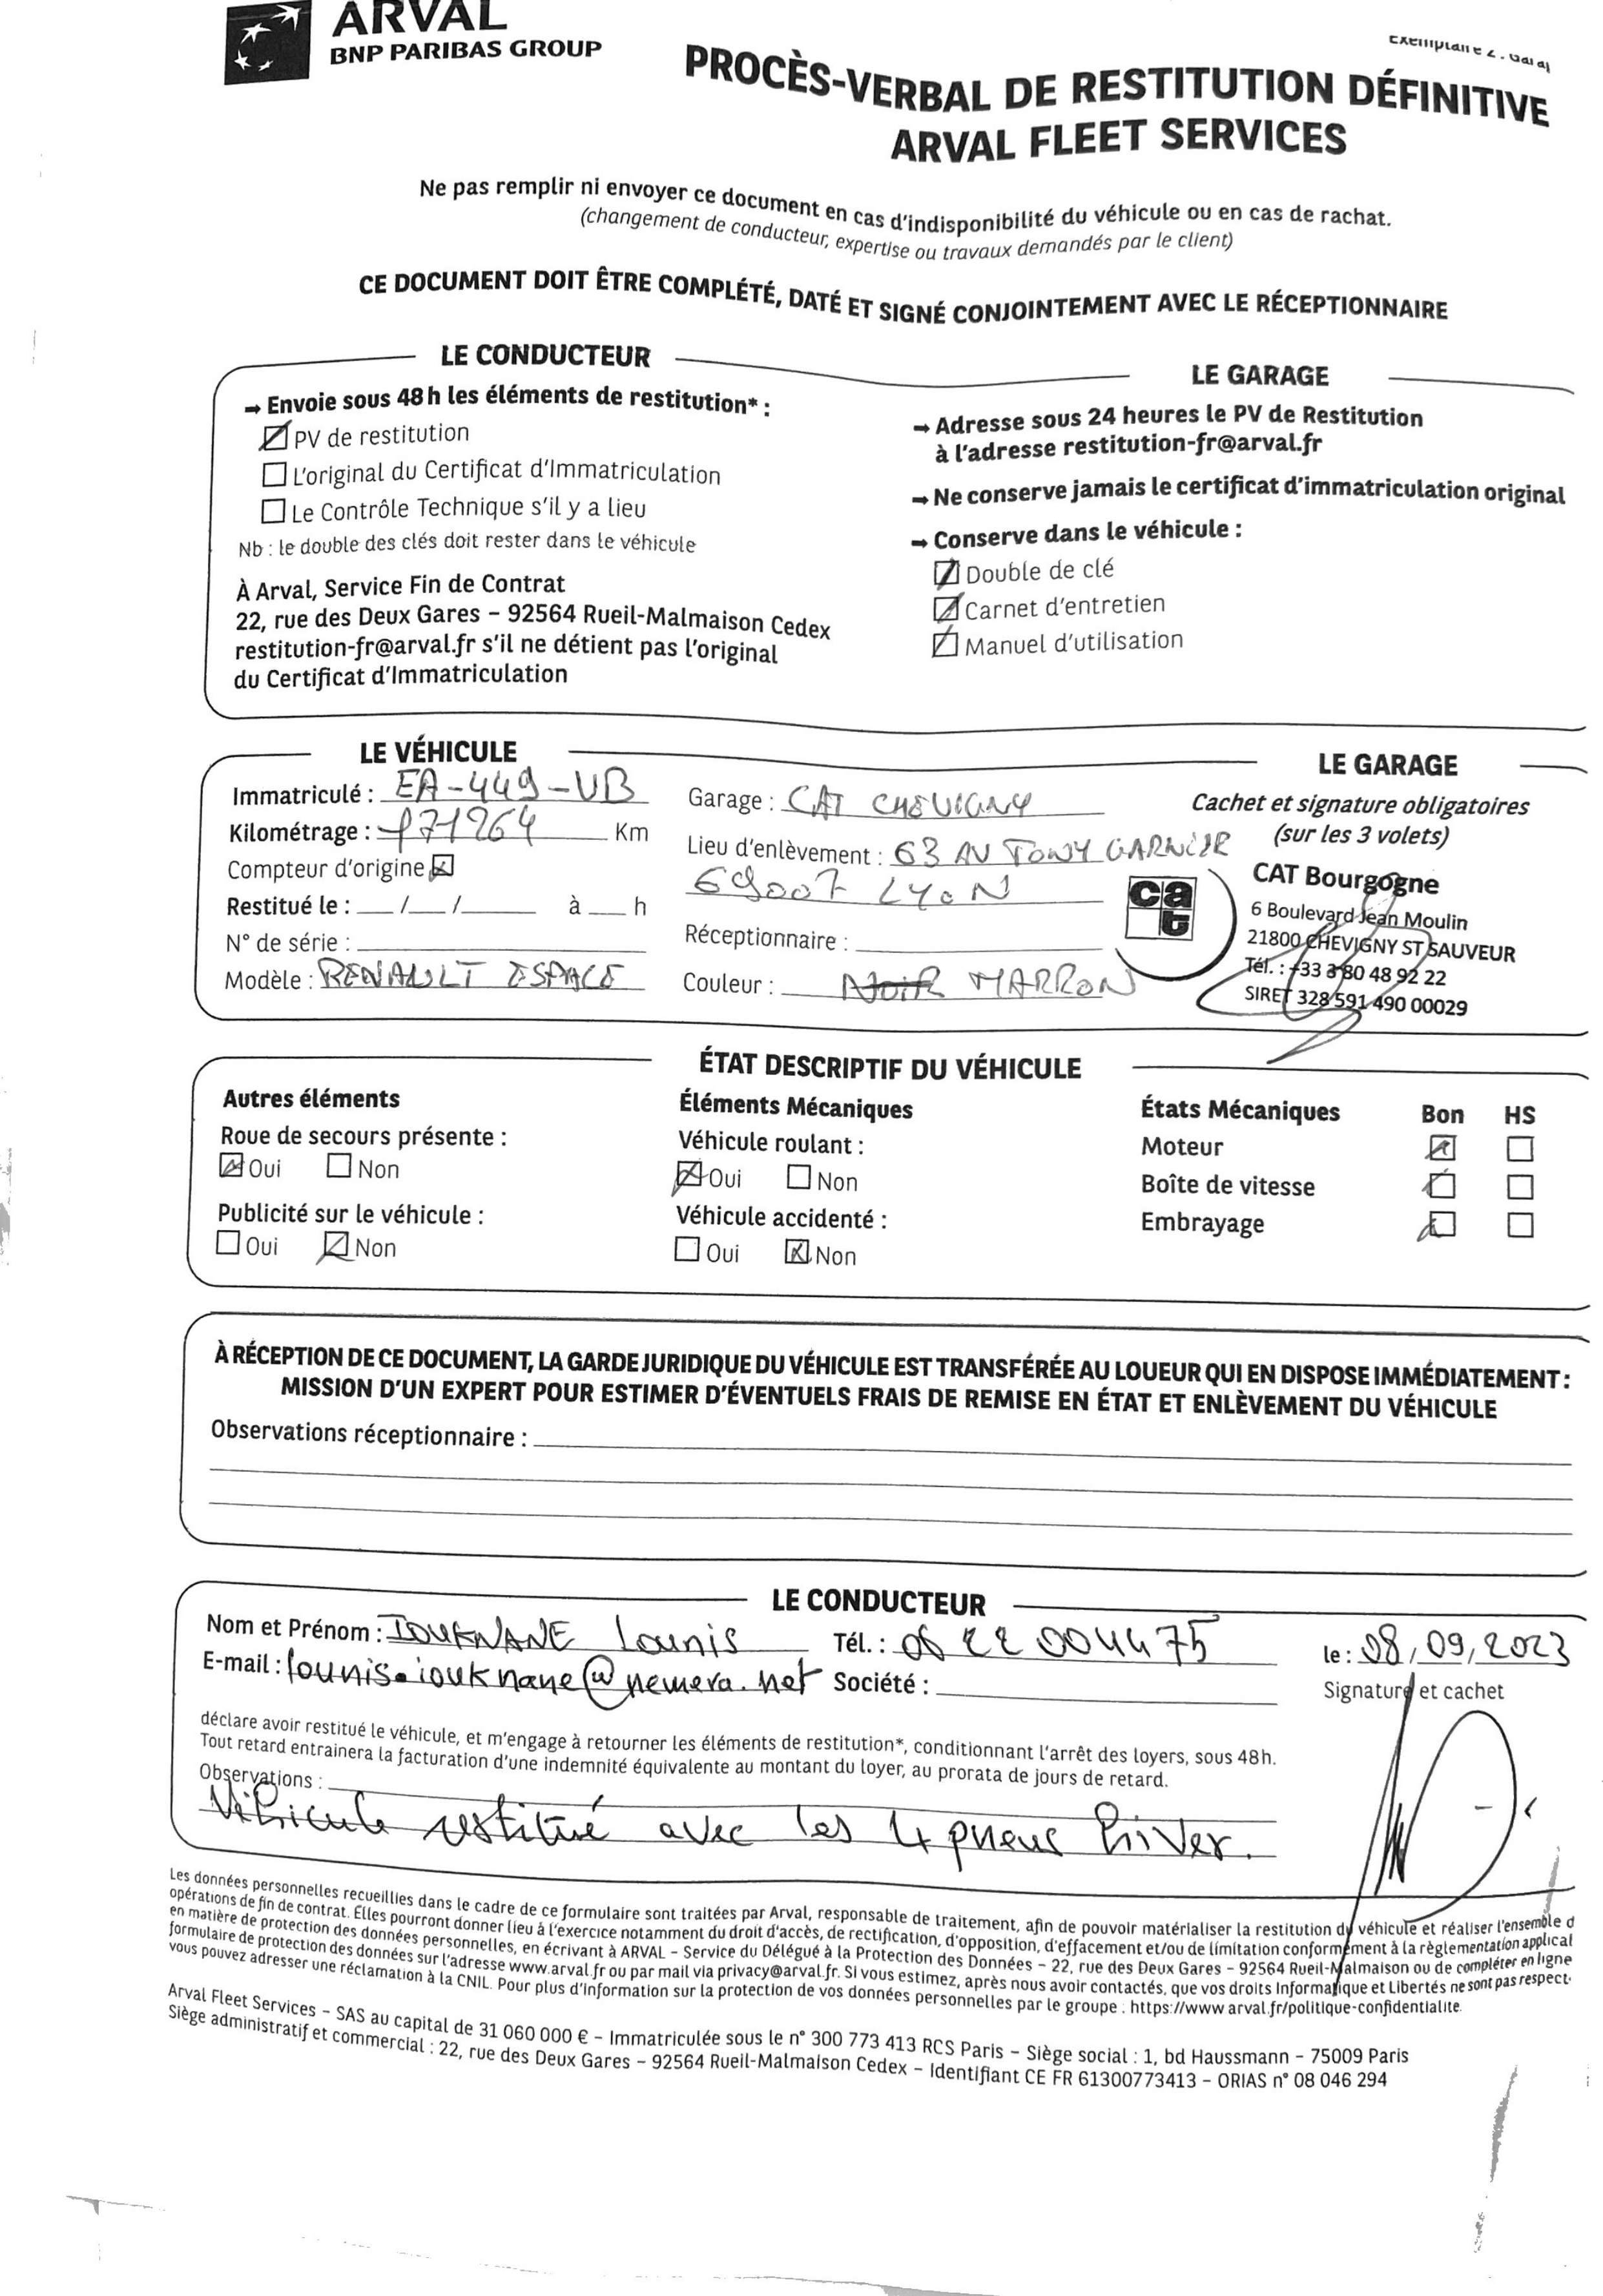 ARVAL
BNP PARIBAS GROUP
Exemplaire 2 : Garag
PROCÈS-VERBAL DE RESTITUTION DÉFINITIVE
ARVAL FLEET SERVICES
Ne pas remplir ni envoyer ce document en cas d'indisponibilité du véhicule ou en cas de rachat.
(changement de conducteur, expertise ou travaux demandés par le client)
CE DOCUMENT DOIT ÊTRE COMPLÉTÉ, DATÉ ET SIGNÉ CONJOINTEMENT AVEC LE RÉCEPTIONNAIRE
LE CONDUCTEUR
→ Envoie sous 48 h les éléments de restitution* :
PV de restitution
L'original du Certificat d'Immatriculation
Le Contrôle Technique s'il y a lieu
Nb : le double des clés doit rester dans le véhicule
À Arval, Service Fin de Contrat
22, rue des Deux Gares – 92564 Rueil-Malmaison Cedex
restitution-fr@arval.fr s'il ne détient pas l'original
du Certificat d'Immatriculation
LE GARAGE
→ Adresse sous 24 heures le PV de Restitution
à l'adresse restitution-fr@arval.fr
→ Ne conserve jamais le certificat d'immatriculation original
→ Conserve dans le véhicule :
Double de clé
Carnet d'entretien
Manuel d'utilisation
LE VÉHICULE
Immatriculé : EA-449-VB
Kilométrage : 171264 Km
Compteur d'origine
Restitué le : __ /__ /____ à __ h
N° de série :
Modèle : RENAULT ESPACE
Garage : CAT CHEVIGNY
Lieu d'enlèvement : 63 AV TONY GARNIER
69007 LYON
Réceptionnaire :
Couleur : NOIR MARRON
LE GARAGE
Cachet et signature obligatoires
(sur les 3 volets)
cat
CAT Bourgogne
6 Boulevard Jean Moulin
21800 CHEVIGNY ST SAUVEUR
Tél. : +33 3 80 48 92 22
SIRET 328 591 490 00029
ÉTAT DESCRIPTIF DU VÉHICULE
Autres éléments
Roue de secours présente :
Oui Non
Publicité sur le véhicule :
Oui Non
Éléments Mécaniques
Véhicule roulant :
Oui Non
Véhicule accidenté :
Oui Non
États Mécaniques Bon HS
Moteur
Boîte de vitesse
Embrayage
À RÉCEPTION DE CE DOCUMENT, LA GARDE JURIDIQUE DU VÉHICULE EST TRANSFÉRÉE AU LOUEUR QUI EN DISPOSE IMMÉDIATEMENT :
MISSION D'UN EXPERT POUR ESTIMER D'ÉVENTUELS FRAIS DE REMISE EN ÉTAT ET ENLÈVEMENT DU VÉHICULE
Observations réceptionnaire :
LE CONDUCTEUR
Nom et Prénom : IOUKNANE Lounis Tél. : 06 22 00 44 75 le : 08/09/2023
E-mail : lounis.iouknane@nemera.net Société :
Signature et cachet
déclare avoir restitué le véhicule, et m'engage à retourner les éléments de restitution*, conditionnant l'arrêt des loyers, sous 48h.
Tout retard entrainera la facturation d'une indemnité équivalente au montant du loyer, au prorata de jours de retard.
Observations :
Véhicule restitué avec les 4 pneus hiver.
Les données personnelles recueillies dans le cadre de ce formulaire sont traitées par Arval, responsable de traitement, afin de pouvoir matérialiser la restitution du véhicule et réaliser l'ensemble d
opérations de fin de contrat. Elles pourront donner lieu à l'exercice notamment du droit d'accès, de rectification, d'opposition, d'effacement et/ou de limitation conformément à la règlementation applical
en matière de protection des données personnelles, en écrivant à ARVAL – Service du Délégué à la Protection des Données – 22, rue des Deux Gares – 92564 Rueil-Malmaison ou de compléter en ligne
formulaire de protection des données sur l'adresse www.arval.fr ou par mail via privacy@arval.fr. Si vous estimez, après nous avoir contactés, que vos droits Informatique et Libertés ne sont pas respect
vous pouvez adresser une réclamation à la CNIL. Pour plus d'information sur la protection de vos données personnelles par le groupe : https://www arval.fr/politique-confidentialite.
Arval Fleet Services – SAS au capital de 31 060 000 € – Immatriculée sous le n° 300 773 413 RCS Paris – Siège social : 1, bd Haussmann – 75009 Paris
Siège administratif et commercial : 22, rue des Deux Gares – 92564 Rueil-Malmaison Cedex – Identifiant CE FR 61300773413 – ORIAS n° 08 046 294